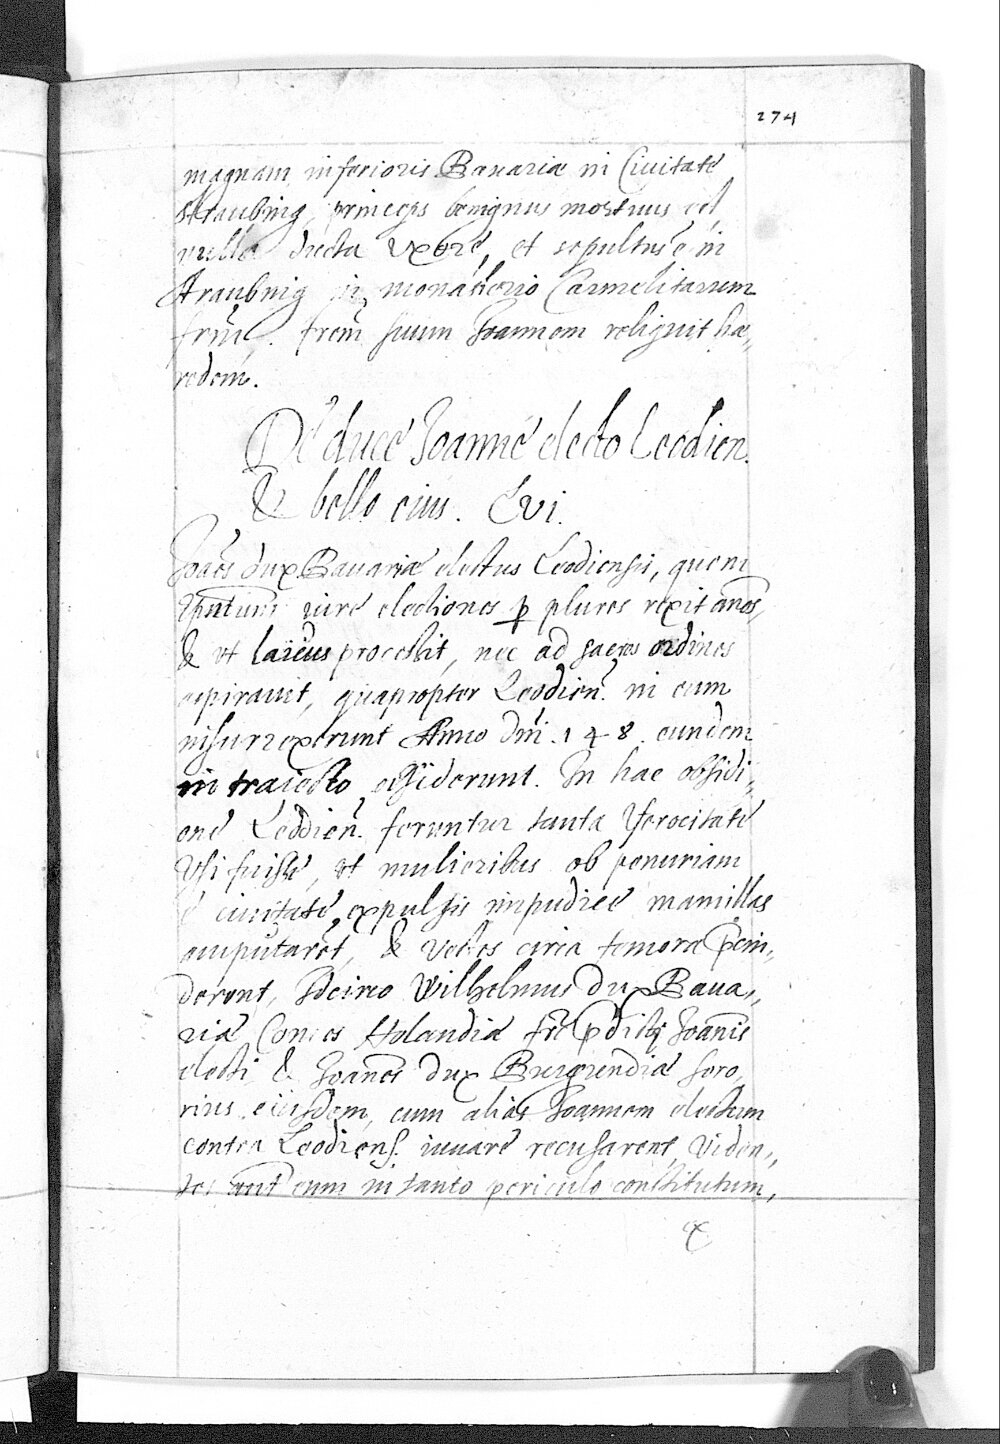 274
magnam inferioris Bavariæ in Civitate
Straubing, princeps benignus mortuus est,
nulla ducta uxore, et sepultus ē in
Straubing in monasterio Carmelitarum
frm̄. frem̄ suum Joannem reliquit hæ,,
redem.
De duce Joanne electo Leodien.
& bello eius. Cvi.
Joaēs dux Bavariæ electus Leodiensis, quem
iure electiones p plures rexit anos,
& ut laicus processit, nec ad sacros ordines
aspiravit, quapropter Leodien. in eum
insurrexerunt Anno Dni. 148. eundem
in traiecto obsiderunt. In hac obsidi,,
one Leodien. feruntur tanta ferocitate
usi fuisse, ut mulieribus ob penuriam
e civitate expulsis impudice mamillas
amputarēt, & vestes circa femora
derent, Idcirco Wilhelmus dux Bava,,
riæ Comes Holandiæ fr̄ pdicti Joanīs
electi & Joanēs dux Burgundiæ soro,
rius eiusdem, cum alias Joannem electum
contra Leodiens. iuvare recusarent, Viden,,
tes aut eum in tanto periculo constitutum,
&